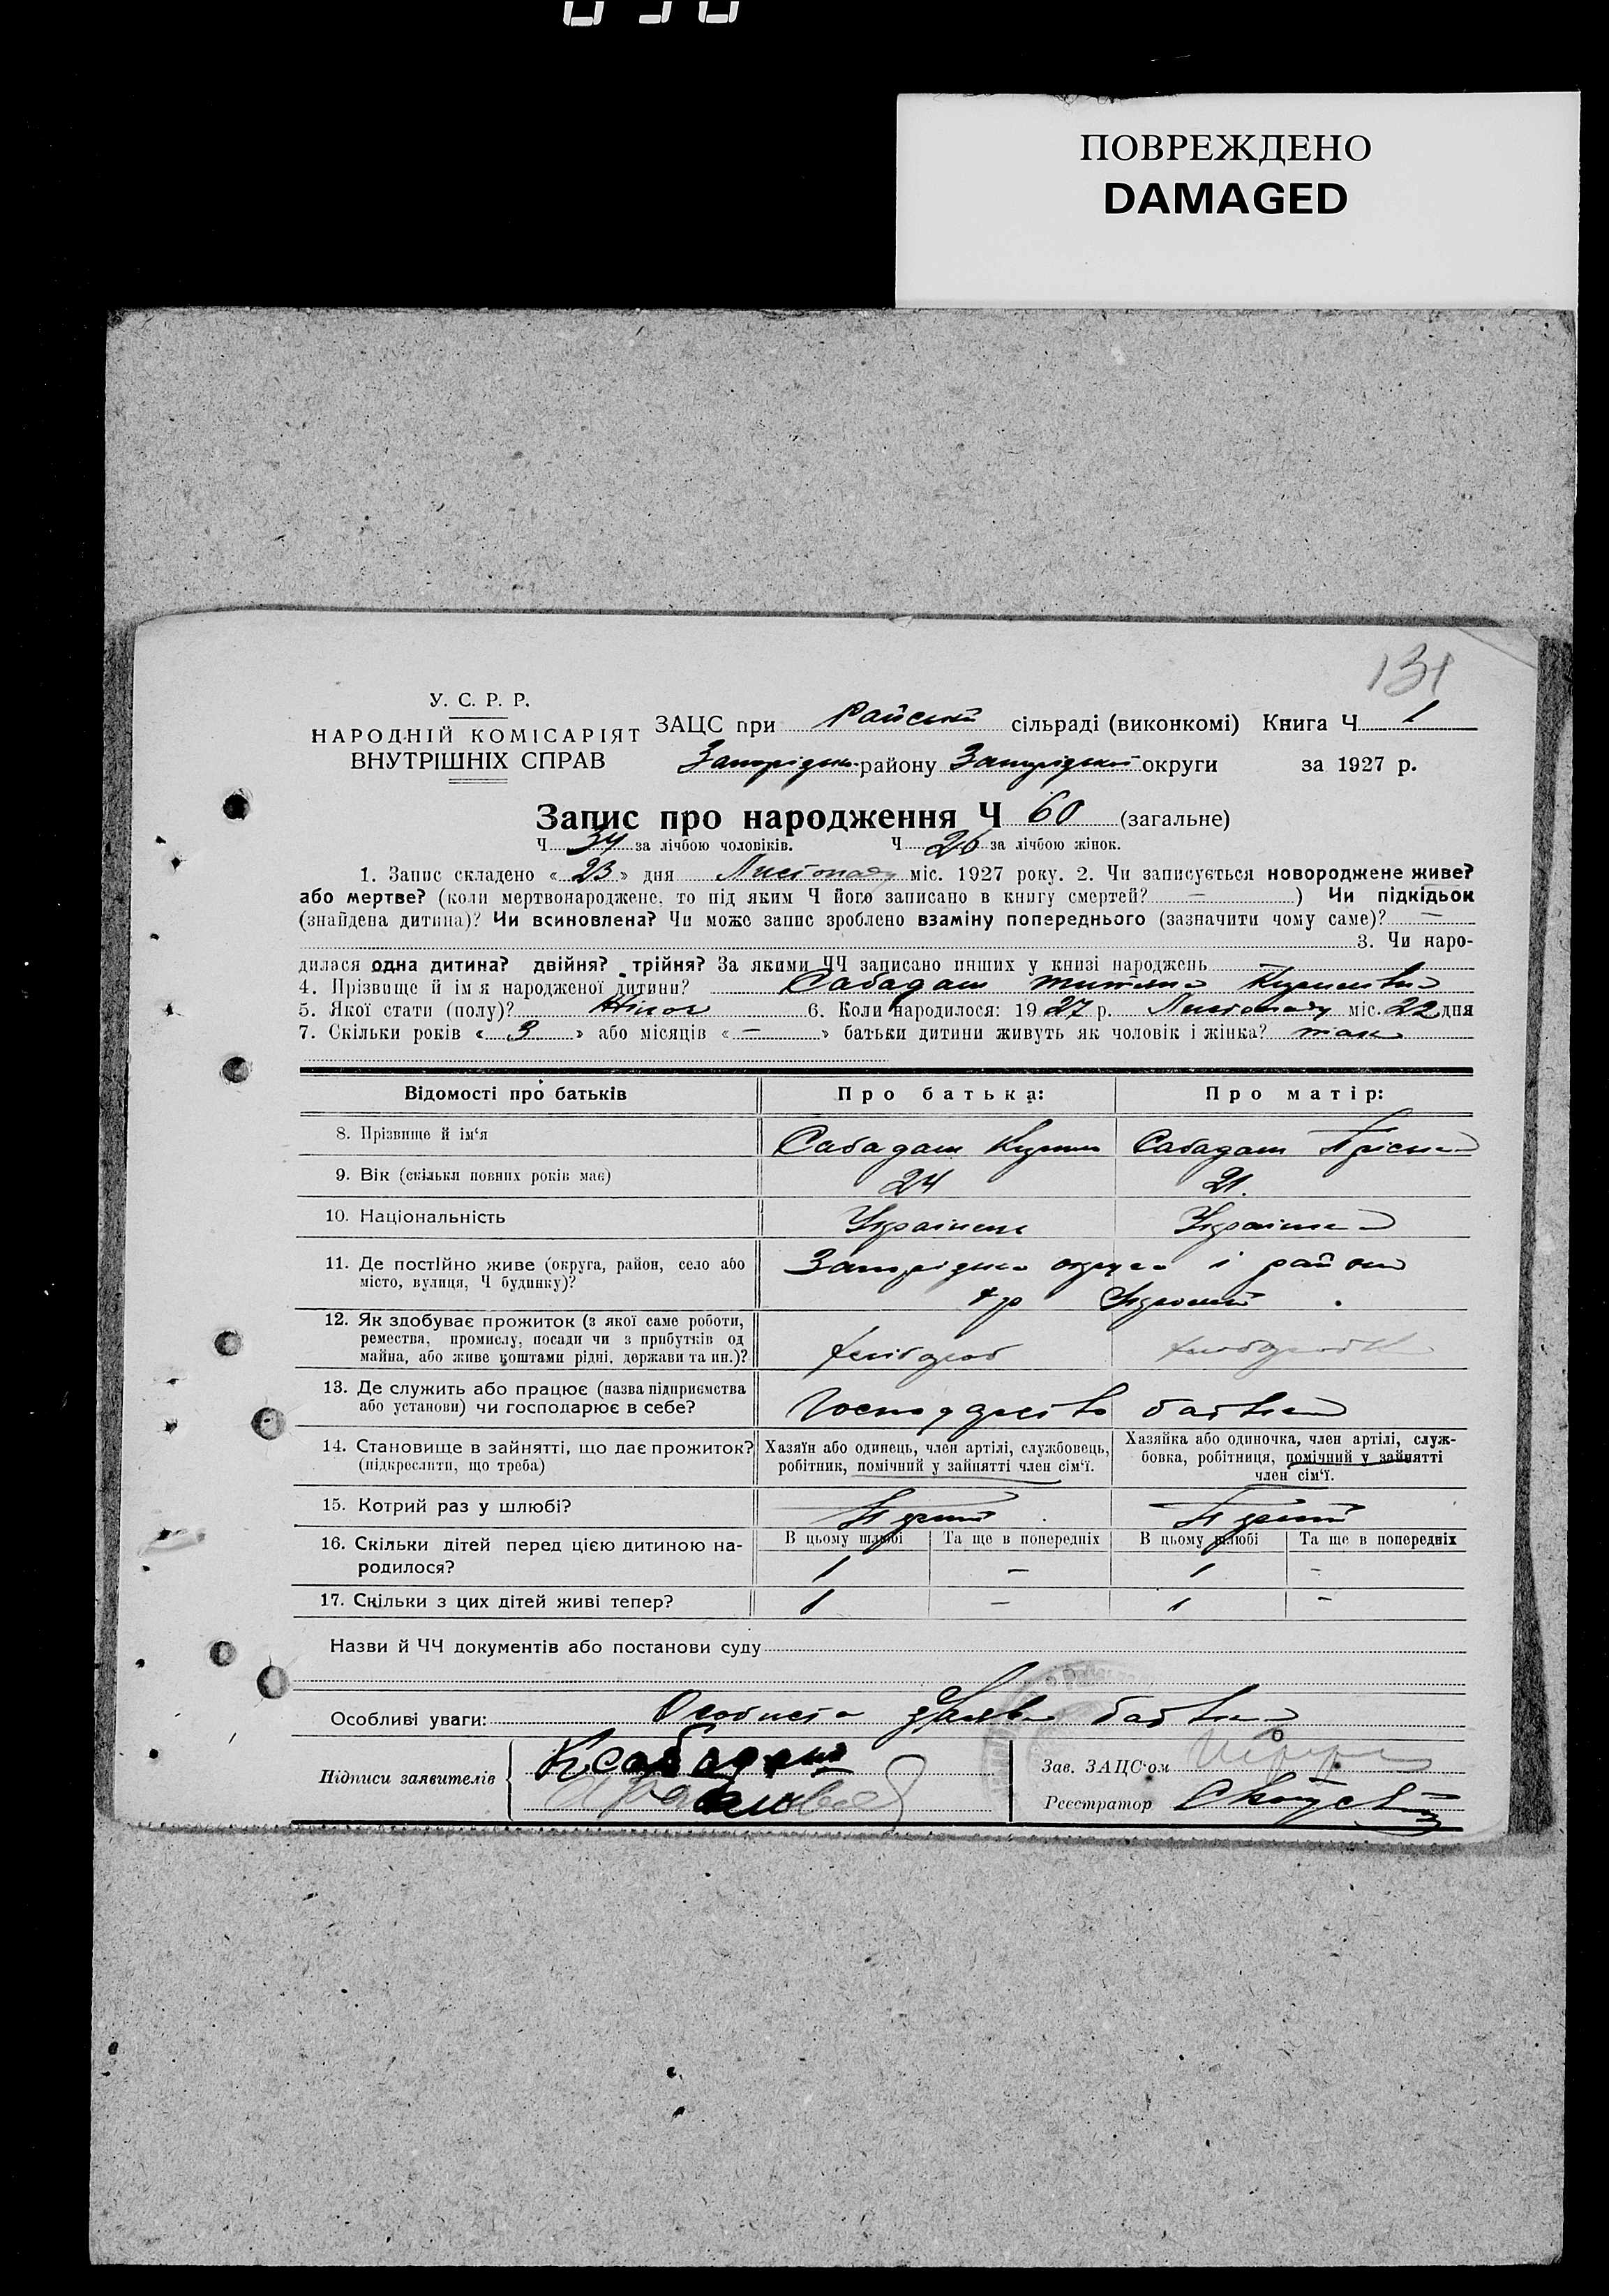 ПОВРЕЖДЕНО
DAMAGED
131
У. С. Р. Р.
НАРОДНІЙ КОМІСАРІЯТ
ВНУТРІШНІХ СПРАВ
ЗАЦС при Райській сільраді (виконкомі) Книга Ч 1
району округи за 1927 р.
Запис про народження Ч 60 (загальне)
Ч 34 за лічбою чоловіків. Ч 26 за лічбою жінок.
1. Запис складено « 23 » дня Листопаду міс. 1927 року. 2. Чи записується новороджене живе?
або мертве? (коли мертвонароджене, то під яким Ч його записано в книгу смертей? — ) Чи підкідьок
(знайдена дитина)? Чи всиновлена? Чи може запис зроблено взаміну попереднього (зазначити чому саме)? —
3. Чи наро-
дилася одна дитина? двійня? трійня? За якими ЧЧ записано инших у книзі народжень
4. Прізвище й ім'я народженої дитини? Сабадаш
5. Якої стати (полу)? Жіноч 6. Коли народилося: 1927 р. Листопаду міс. 22 дня
7. Скільки років « 3 » або місяців « — » батьки дитини живуть як чоловік і жінка? так
Відомості про батьків
Про батька:
Про матір:
8. Прізвище й ім'я
Сабадаш
Сабадаш
9. Вік (скільки повних років має)
24
21.
10. Національність
Українець
Українка
11. Де постійно живе (округа, район, село або
місто, вулиця, Ч будинку)?
округа і район
12. Як здобуває прожиток (з якої саме роботи,
ремества, промислу, посади чи з прибутків од
майна, або живе коштами рідні, держави та ин.)?
хлібороб
13. Де служить або працює (назва підприємства
або установи) чи господарює в себе?
батька
14. Становище в зайнятті, що дає прожиток?
(підкреслити, що треба)
Хазяїн або одинець, член артілі, службовець,
робітник, помічний у зайнятті член сім'ї.
Хазяйка або одиночка, член артілі, служ-
бовка, робітниця, помічний у зайнятті
член сім'ї.
15. Котрий раз у шлюбі?
16. Скільки дітей перед цією дитиною на-
родилося?
В цьому шлюбі
Та ще в попередніх
В цьому шлюбі
Та ще в попередніх
1 — 1 -
17. Скільки з цих дітей живі тепер?
1 — 1 -
Назви й ЧЧ документів або постанови суду
Особливі уваги: Особиста заява батька
Підписи заявителів
К Сабадаш
Зав. ЗАЦС'ом
Реєстратор